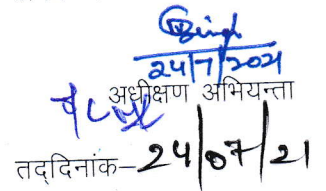 24/7/2021
अधीक्षण अभियन्ता
तद्दिनांक–24/07/21